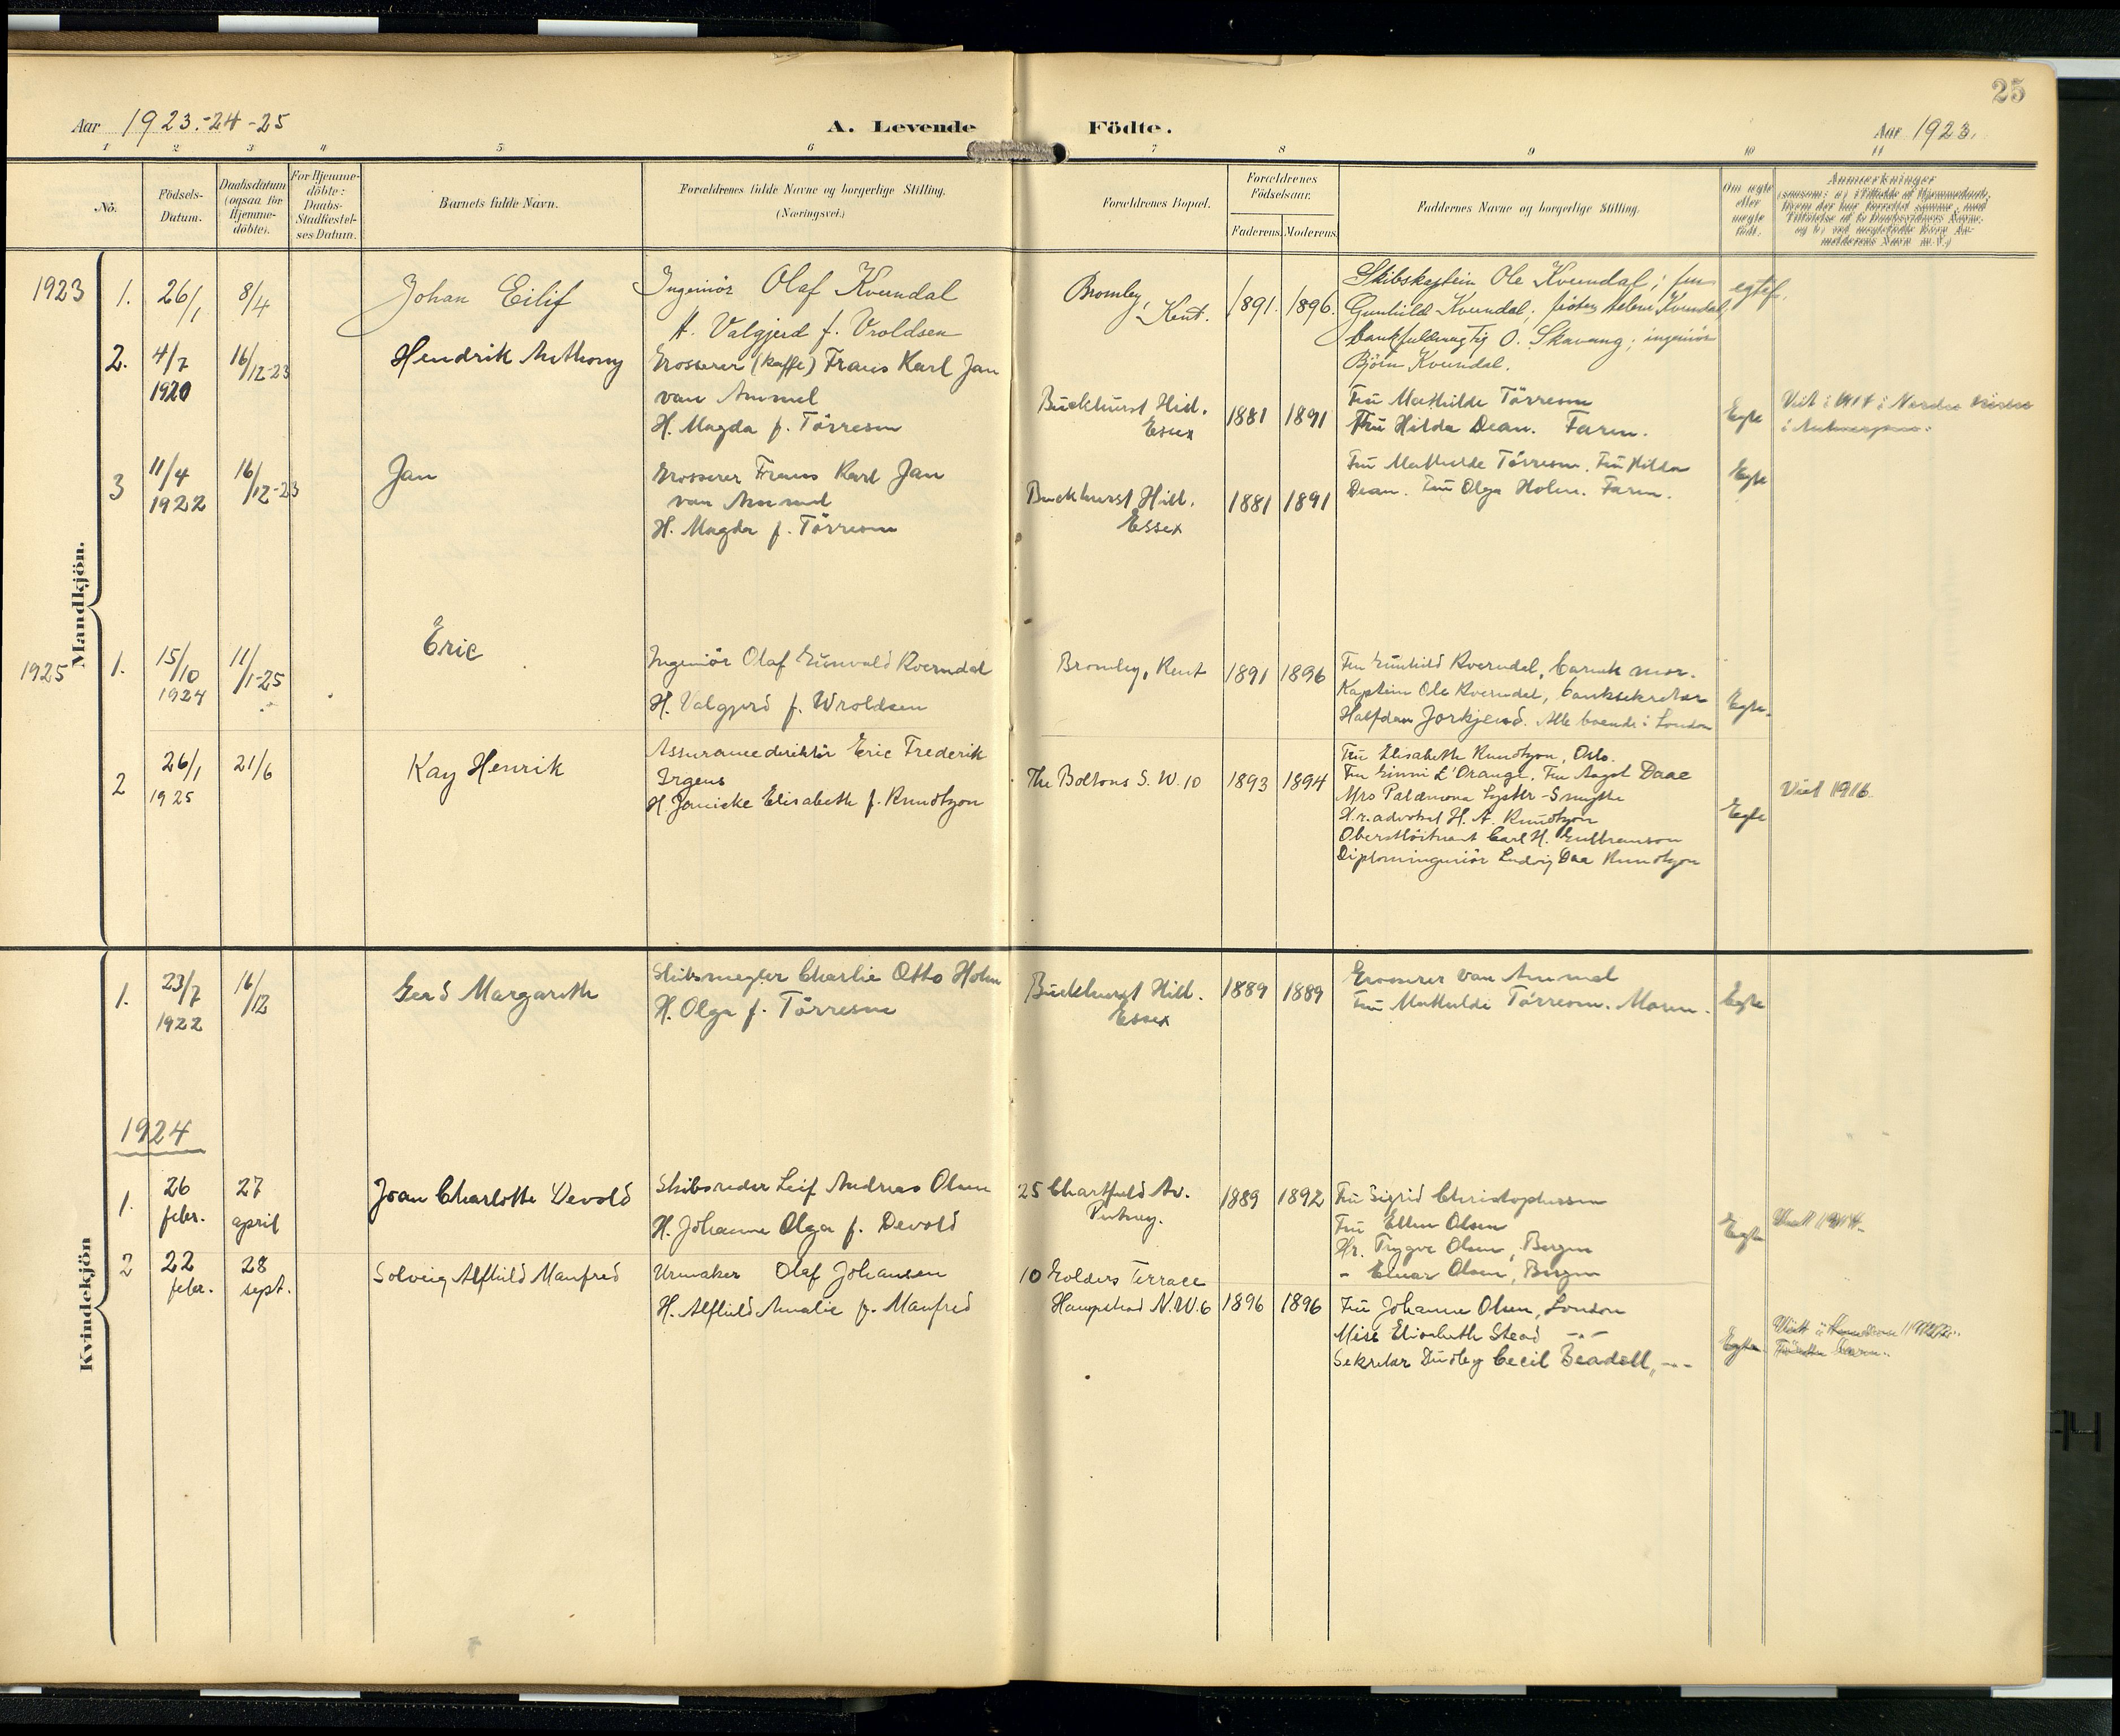 25
Aar 1923.-24-25
A. Levende Födte.
Aar 1923.
1 2 3 4 5 6 7 8 9 10 11
No.
Födsels-Datum.
Daabsdatum (ogsaa for Hjemme-döbte).
For Hjemme-döbte: Daabs-Stadfæstel-ses Datum.
Barnets fulde Navn.
Forældrenes fulde Navne og borgerlige Stilling.
(Næringsvei.)
Forældrenes Bopæl.
Forældrenes Födselsaar.
Faderens. Moderens.
Faddernes Navne og borgerlige Stilling.
Om ægte eller uægte födt.
Anmærkninger
Mandkjön.
1923 1. 26/1 8/4 Johan Eilif
Ingeniör Olaf Kverndal
H. Valgjerd f. Vroldsen
Bromley, Kent.
1891. 1896.
Skibskaptein Ole Kverndal; fru
Gunhild Kverndal; fröken Helene Kverndal;
bankfuldmægtig O. Skavang; ingeniör
Björn Kverndal.
egtef.
2. 4/7 1920 16/12-23 Hendrik Anthony
Grosserer (kaffe) Frans Karl Jan
van Ammel
H. Magda f. Törresen
Buckhurst Hill.
Essex
1881 1891
Fru Mathilde Törresen
Fru Hilda Dean. Faren.
Egte
Viet i 1914 i Norske kirke
i Antwerpen.
3 11/4 1922 16/12-23 Jan
Grosserer Frans Karl Jan
van Ammel
H. Magda f. Törresen
Buckhurst Hill.
Essex
1881 1891
Fru Mathilde Törresen. Fru Hilda
Dean. Fru Olga Holm. Faren.
Egte
1925 1. 15/10 1924 11/1-25 Eric
Ingeniör Olaf Gunvald Kverndal
H. Valgjerd f. Wroldsen
Bromley, Kent
1891 1896
Fru Gunhild Kverndal, barnets mor.
Kaptein Ole Kverndal, banksekretær
Halfdan Jorkjend. Alle boende i London
Egte.
2 26/1 1925 21/6 Kay Henrik
Assurancedirektör Eric Frederik
Irgens
H. Jannicke Elisabeth f. Knudtzon
The Boltons S.W. 10
1893 1894
Fru Elisabeth Knudtzon, Oslo.
Fru Ginni L'Orange. Fru Aagot Daae
Mrs Palæmona Lyster-Smythe
H.r. advokat H. A. Knudtzon
Oberstlöitnant Carl H. Gulbranson
Diplomingeniör Ludvig Daa Knudtzon
Egte
Viet 1916.
Kvindekjön
1. 23/7 1922 16/12 Gerd Margareth
Skibsmegler Charlie Otto Holm
H. Olga f. Törresen
Buckhurst Hill.
Essex
1889 1889
Grosserer van Ammel
Fru Mathilde Törresen. Moren.
Egte
1924
1. 26 febr. 27 april Joan Charlotte Devold
Skibsreder Leif Andreas Olsen
H. Johanne Olga f. Devold
25 Chartfield Av.
Putney.
1889 1892
Fru Sigrid Christophersen
Fru Ellen Olsen
Hr. Trygve Olsen, Bergen
- Einar Olsen, Bergen
Egte
Viet 1914.
2 22 febr. 28 sept. Solveig Alfhild Manfred
Urmaker Olaf Johansen
H. Alfhild Amalie f. Manfred
10 Golders Terrace
Hampstead N.W.6
1896 1896
Fru Johanne Olsen, London
Miss Elisabeth Stead -"-
Sekretær Dudley Cecil Beadell, -"-
Egte